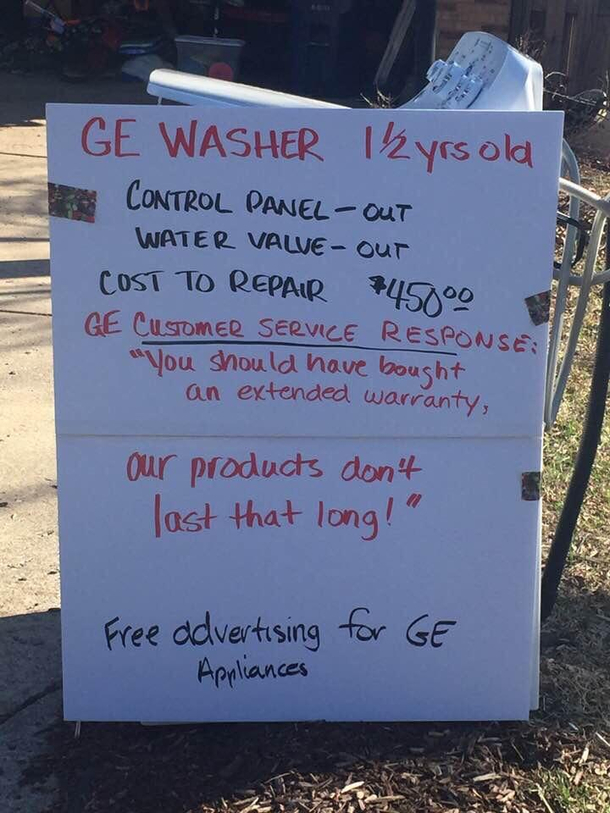 GE WASHER 1½ yrs old
CONTROL PANEL – OUT
WATER VALVE – OUT
COST TO REPAIR $450⁰⁰
GE CUSTOMER SERVICE RESPONSE:
"You should have bought
an extended warranty,
our products don't
last that long!"
Free advertising for GE
Appliances